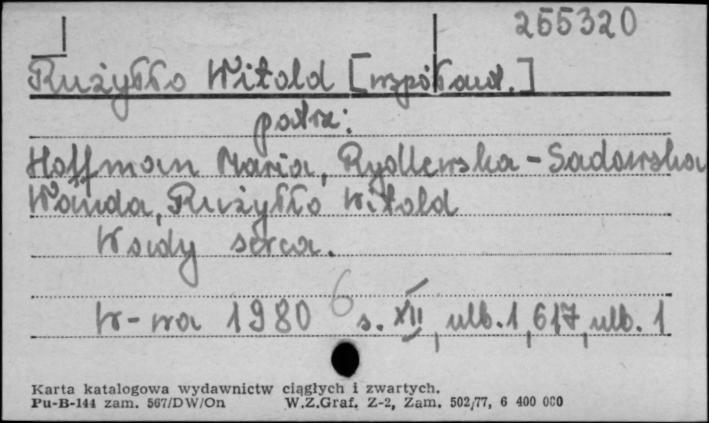 255320
Rużyłło Witold [współaut.]
patrz:
Hoffman Maria, Rydlewska-Sadowska
Wanda, Rużyłło Witold
Wady serca.
W-wa 1980 6 s. XII, ulb. 1, 617, ulb. 1
Karta katalogowa wydawnictw ciągłych i zwartych.
Pu-B-144 zam. 567/DW/On W.Z.Graf. Z-2, Zam. 502/77, 6 400 000